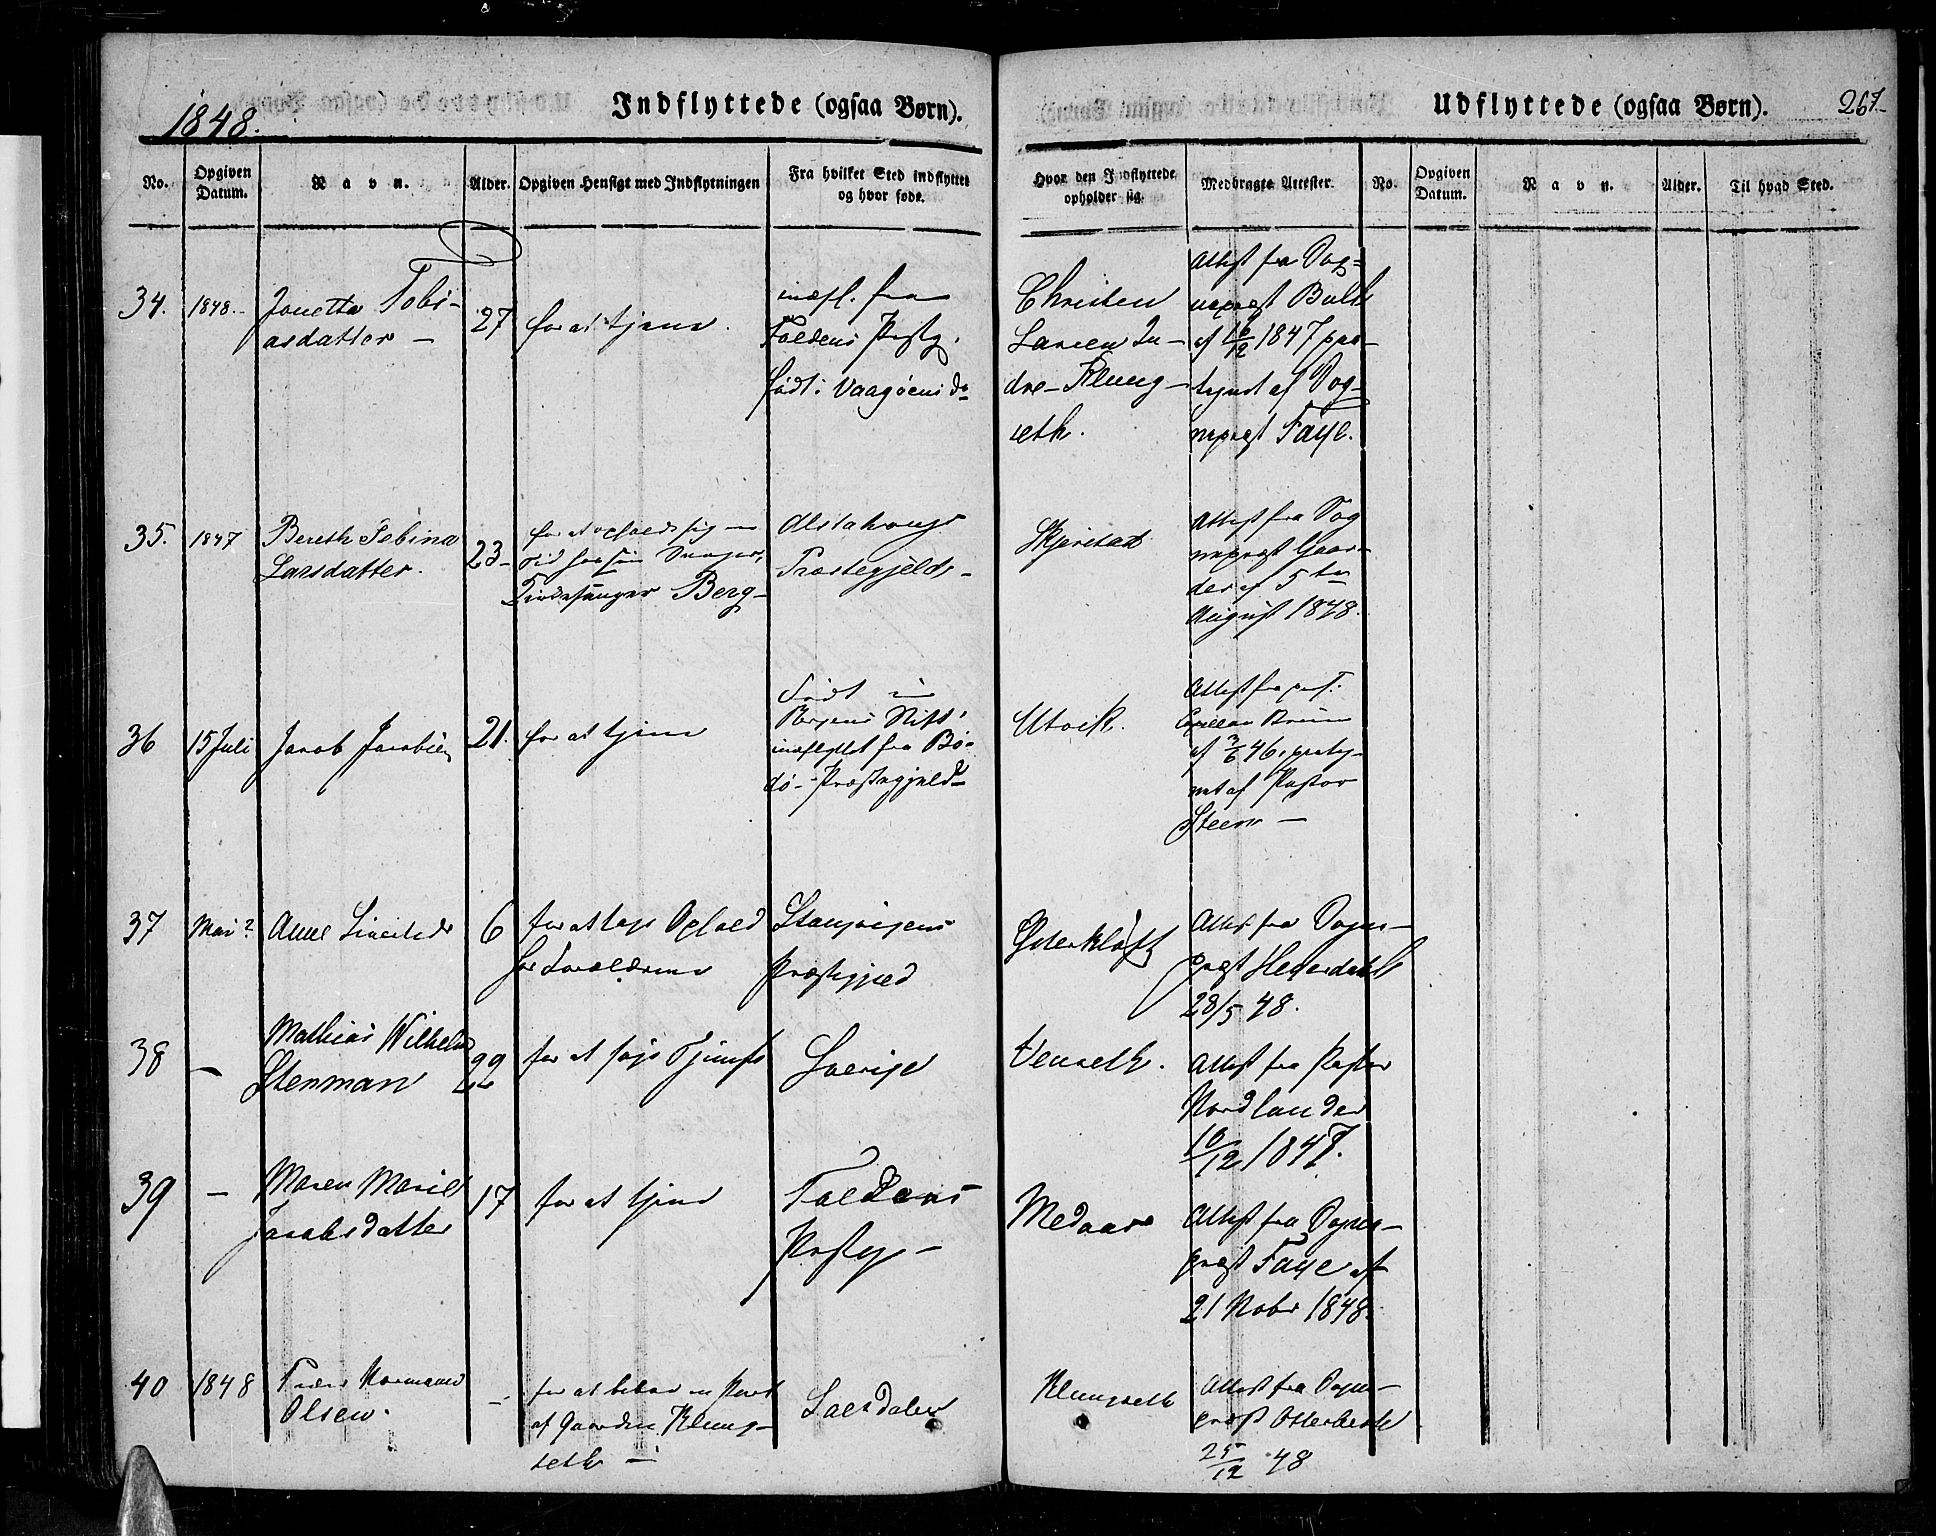 1848.
Indflyttede (ogsaa Børn).
Udflyttede (ogsaa Børn).
267.
No.
Opgiven Datum.
Navn.
Alder.
Opgiven Hensigt med Indflytningen
Fra hvilket Sted indflyttet og hvorføde.
Hvor den Indflyttede opholder sig.
Medbragte Attester.
No.
Opgiven Datum.
Navn.
Alder.
Til hvad Sted.
34.
1848.
Jonetta Tobi-
asdatter —
27
for at tjene.
indfl. fra
Foldens Præstg.
født i Vaagøens do
Christen
Larsen In-
dre-Klung-
seth.
Attest fra Sog-
neprest
af 16/12 1847 paa-
tegnet af Sog-
neprest Faye.
35.
1847
Bereth
Larsdatter.
23-
for at opholde sig
Svoger,
Berg-
Alstahougs
Præstegjeld-
Skjerstad
Attest fra Sog
neprest Gaar-
der af 5te
August 1848.
36
15 Juli
Jacob Jacobsen
21.
for at tjene
Født i
Bergens Stift,
indflyttet fra Bo-
dø-Præstegjeld-
Utvik.
Attest fra
Capellan Bruun
af 3/6 46, paateg-
net af Pastor
Steen —
37
Mai?
Anne
6
for at tage Ophold
hos Forældrene
Præstegjeld
Attest fra Sogne-
prest
28/5 48.
38
—
Mathias Wilhelm
Stenman
22
for at søge Tjeneste
Sverige
Venseth.
Attest fra Pastor
Nordlander
10/12 1847.
39
—
Maren Marie
Jacobsdatter
17
for at tjene
Foldens
Præstg-
Medaas
Attest fra Sogne-
prest Faye af
21 Nobr 1848.
40
1848
Peder Normann
Olsen.
-
for at en Part
af Gaarden Klung-
seth —
Saltdalen
Klungseth
Attest fra Sogne-
prest
25/12 48